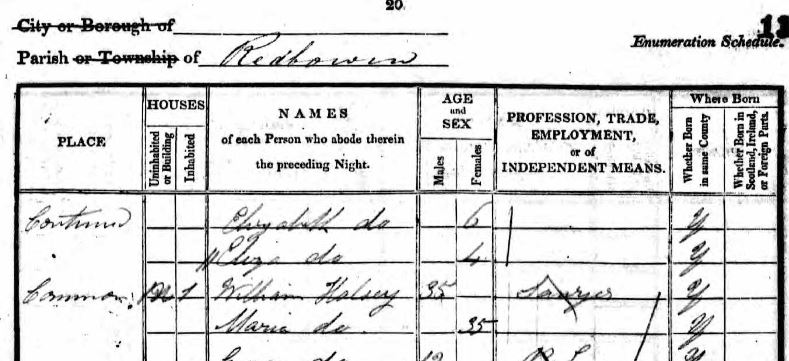 20
City or Borough of
Parish or Township of Redbourn
Enumeration Schedule.
13
PLACE
HOUSES
Uninhabited or Building
Inhabited
NAMES
of each Person who abode therein
the preceding Night.
AGE
and
SEX
Males
Females
PROFESSION, TRADE,
EMPLOYMENT,
or of
INDEPENDENT MEANS.
Where Born
Whether Born in same County
Whether Born in Scotland, Ireland, or Foreign Parts.
Continued Elizabeth do 6 Y
Eliza do 4 Y
Common 1 William Halsey 35 Sawyer Y
Maria do 35 Y
do Y